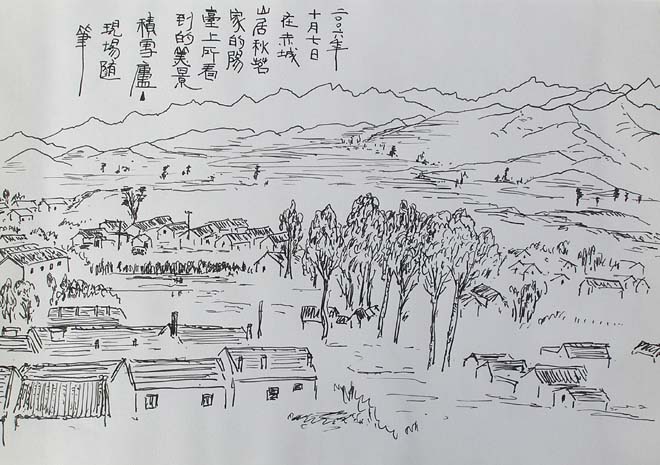 二〇〇六年
十月七日
在赤城
山居秋
家的陽
臺上所看
到的美景
積雪廬
現場隨
筆